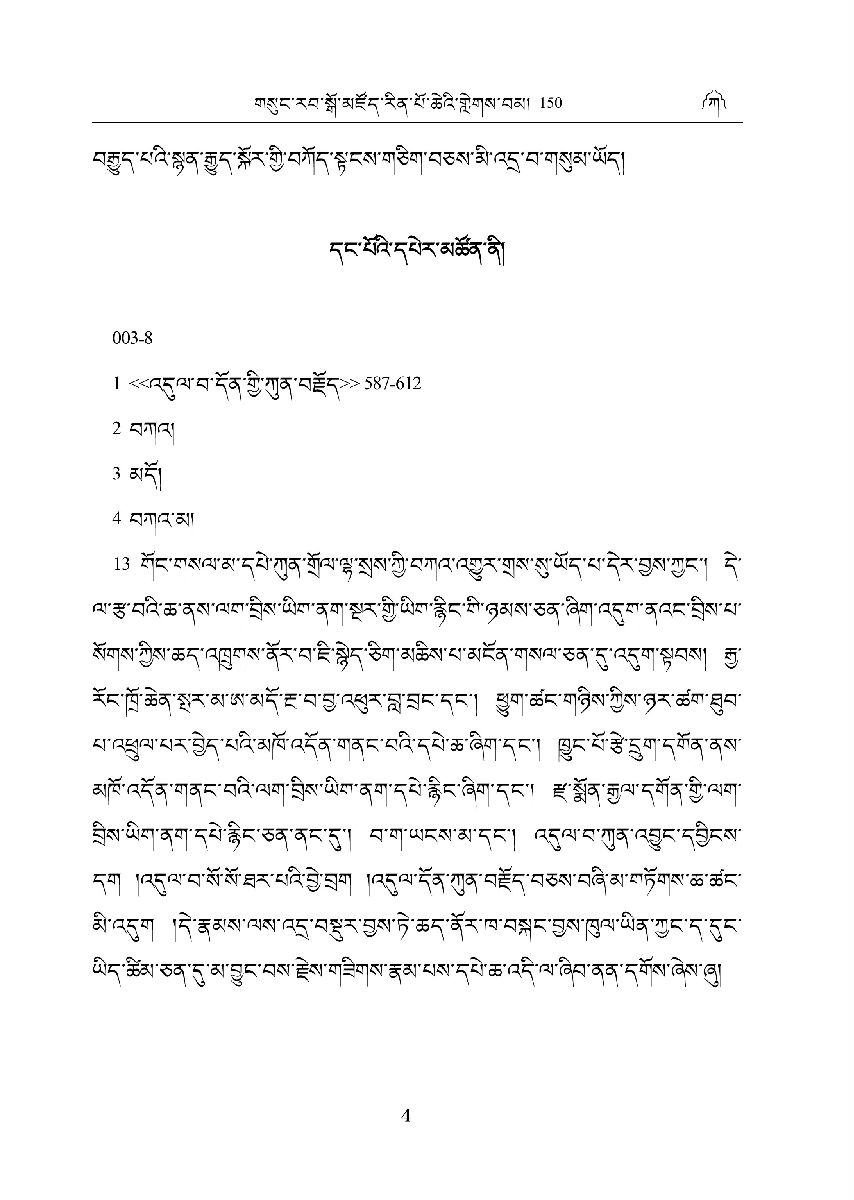 གསུང་རབ་སྒོ་མཛོད་རིན་པོ་ཆེའི་གླེགས་བམ། 150 ༼ཀ༽
བརྒྱུད་པའི་སྙན་རྒྱུད་སྐོར་གྱི་བཀོད་སྟངས་གཅིག་བཅས་མི་འདྲ་བ་གསུམ་ཡོད།
དང་པོའི་དཔེར་མཚོན་ནི།
003-8
1 <<འདུལ་བ་དོན་གྱི་ཀུན་བརྗོད>> 587-612
2 བཀའ།
3 མདོ།
4 བཀའ་མ།
13 གོང་གསལ་མ་དཔེ་ཀུན་གྲོལ་ལྷ་སྲས་ཀྱི་བཀའ་འགྱུར་གྲས་སུ་ཡོད་པ་དེར་བྱས་ཀྱང་། དེ་
ལ་རྩ་བའི་ཆ་ནས་ལག་བྲིས་ཡིག་ནག་སྔར་གྱི་ཡིག་རྙིང་གི་ཉམས་ཅན་ཞིག་འདུག་ནའང་བྲིས་པ་
སོགས་ཀྱིས་ཆད་འཁྲུགས་ནོར་བ་ཇི་སྙེད་ཅིག་མཆིས་པ་མངོན་གསལ་ཅན་དུ་འདུག་སྟབས། རྒྱ་
རོང་ཁྲོ་ཆེན་སྤར་མ་ཨ་མདོ་རྔ་བ་བྱ་འཕུར་བླ་བྲང་དང་། ཕྱུག་ཚང་གཉིས་ཀྱིས་ཉར་ཚག་ཐུབ་
པ་འཕྲུལ་པར་བྱེད་པའི་མཁོ་འདོན་གནང་བའི་དཔེ་ཆ་ཞིག་དང་། ཁྱུང་པོ་རྩེ་དྲུག་དགོན་ནས་
མཁོ་འདོན་གནང་བའི་ལག་བྲིས་ཡིག་ནག་དཔེ་རྙིང་ཞིག་དང་། རྫ་སྨོན་རྒྱལ་དགོན་གྱི་ལག་
བྲིས་ཡིག་ནག་དཔེ་རྙིང་ཅན་ནང་དུ། བ་ག་ཡངས་མ་དང་། འདུལ་བ་ཀུན་འབྱུང་དབྱིངས་
དག །འདུལ་བ་སོ་སོ་ཐར་པའི་བྱེ་བྲག །འདུལ་དོན་ཀུན་བརྗོད་བཅས་བཞི་མ་གཏོགས་ཆ་ཚང་
མི་འདུག །དེ་རྣམས་ལས་འདྲ་བསྡུར་བྱས་ཏེ་ཆད་ནོར་ཁ་བསྐང་བྱས་ཁུལ་ཡིན་ཀྱང་ད་དུང་
ཡིད་ཚིམ་ཅན་དུ་མ་བྱུང་བས་རྗེས་གཟིགས་རྣམ་པས་དཔེ་ཆ་འདི་ལ་ཞིབ་ནན་དགོས་ཞེས་ཞུ།
4